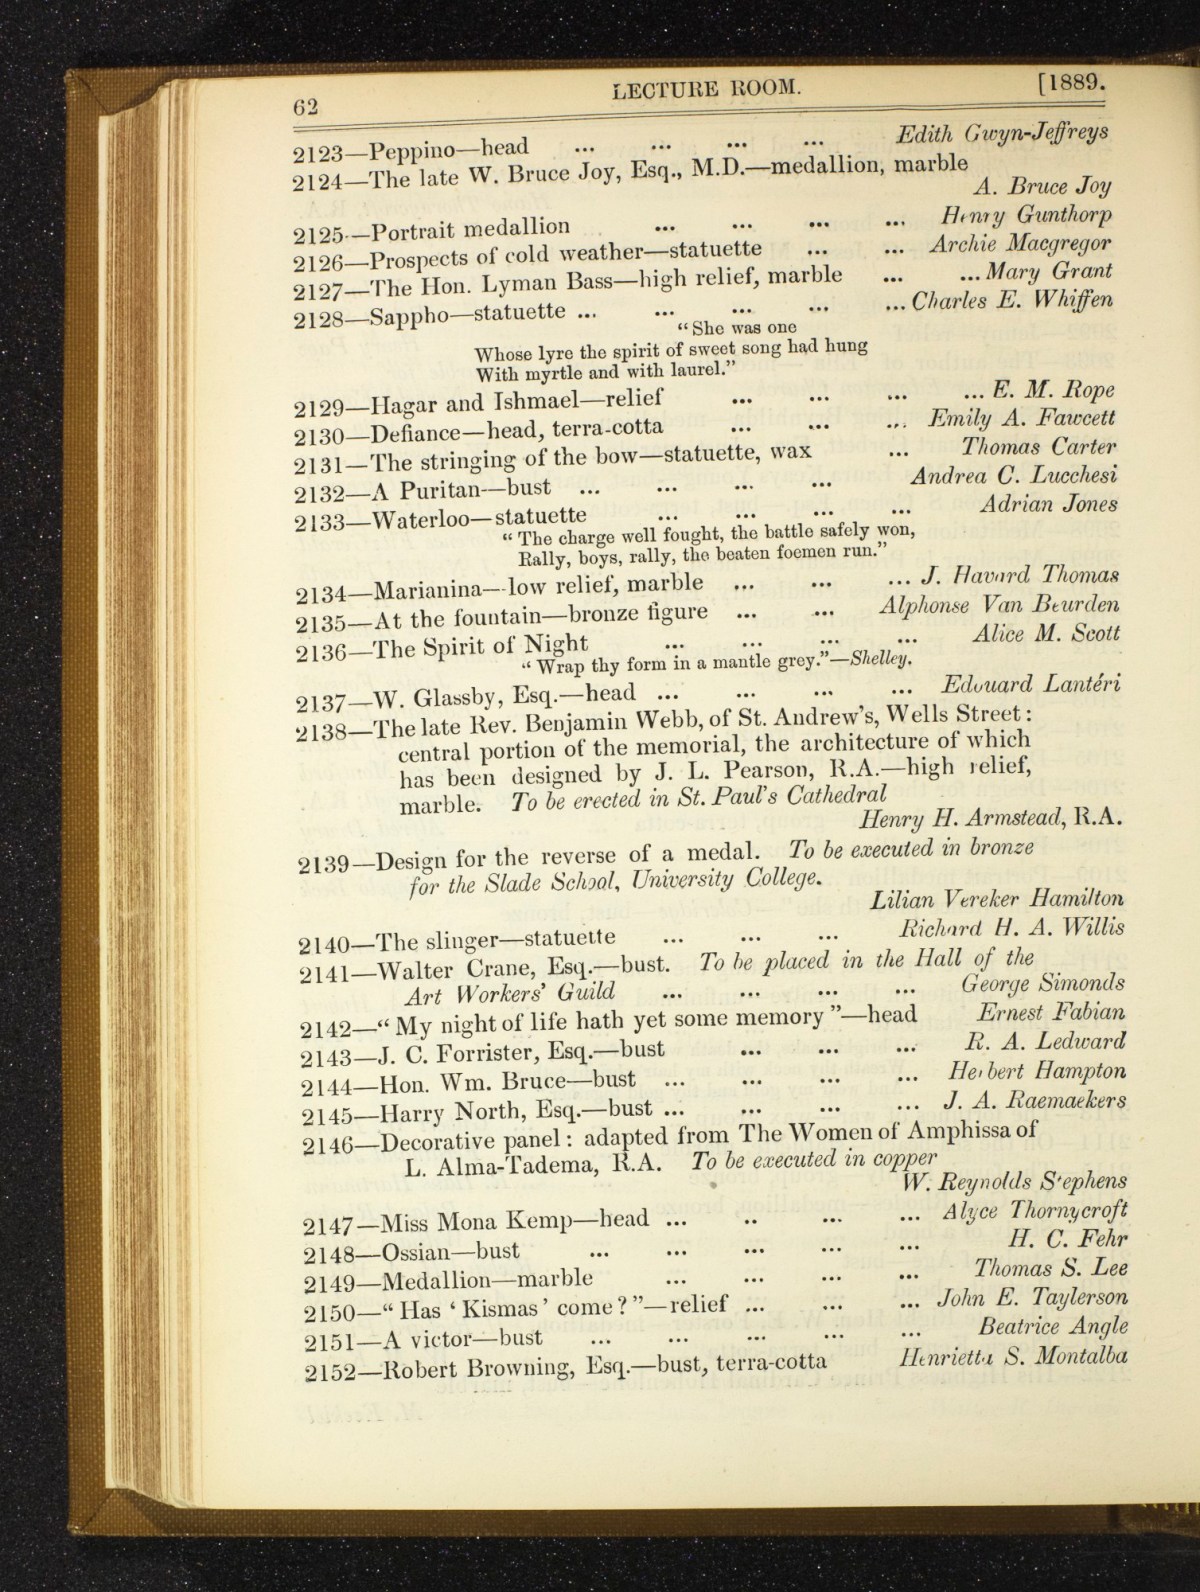 62 LECTURE ROOM. [1889.
2123—Peppino—head ... ... ... ... Edith Gwyn-Jeffreys
2124—The late W. Bruce Joy, Esq., M.D.—medallion, marble
A. Bruce Joy
2125—Portrait medallion ... ... ... ... Henry Gunthorp
2126—Prospects of cold weather—statuette ... ... Archie Macgregor
2127—The Hon. Lyman Bass—high relief, marble ... ... Mary Grant
2128—Sappho—statuette ... ... ... ... ... Charles E. Whiffen
"She was one
Whose lyre the spirit of sweet song had hung
With myrtle and with laurel."
2129—Hagar and Ishmael—relief ... ... ... ... E. M. Rope
2130—Defiance—head, terra-cotta ... ... ... Emily A. Fawcett
2131—The stringing of the bow—statuette, wax ... Thomas Carter
2132—A Puritan—bust ... ... ... ... Andrea C. Lucchesi
2133—Waterloo—statuette ... ... ... ... Adrian Jones
"The charge well fought, the battle safely won,
Rally, boys, rally, the beaten foemen run."
2134—Marianina—low relief, marble ... ... ... J. Havard Thomas
2135—At the fountain—bronze figure ... ... Alphonse Van Beurden
2136—The Spirit of Night ... ... ... ... Alice M. Scott
"Wrap thy form in a mantle grey."—Shelley.
2137—W. Glassby, Esq.—head ... ... ... ... Edouard Lantéri
2138—The late Rev. Benjamin Webb, of St. Andrew's, Wells Street:
central portion of the memorial, the architecture of which
has been designed by J. L. Pearson, R.A.—high relief,
marble. To be erected in St. Paul's Cathedral
Henry H. Armstead, R.A.
2139—Design for the reverse of a medal. To be executed in bronze
for the Slade School, University College.
Lilian Vereker Hamilton
2140—The slinger—statuette ... ... ... Richard H. A. Willis
2141—Walter Crane, Esq.—bust. To be placed in the Hall of the
Art Workers' Guild ... ... ... ... George Simonds
2142—"My night of life hath yet some memory"—head Ernest Fabian
2143—J. C. Forrister, Esq.—bust ... ... ... R. A. Ledward
2144—Hon. Wm. Bruce—bust ... ... ... ... Herbert Hampton
2145—Harry North, Esq.—bust ... ... ... ... J. A. Raemaekers
2146—Decorative panel: adapted from The Women of Amphissa of
L. Alma-Tadema, R.A. To be executed in copper
W. Reynolds Stephens
2147—Miss Mona Kemp—head ... .. ... ... Alyce Thornycroft
2148—Ossian—bust ... ... ... ... ... H. C. Fehr
2149—Medallion—marble ... ... ... ... Thomas S. Lee
2150—"Has 'Kismas' come?"—relief ... ... ... John E. Taylerson
2151—A victor—bust ... ... ... ... ... Beatrice Angle
2152—Robert Browning, Esq.—bust, terra-cotta Henrietta S. Montalba